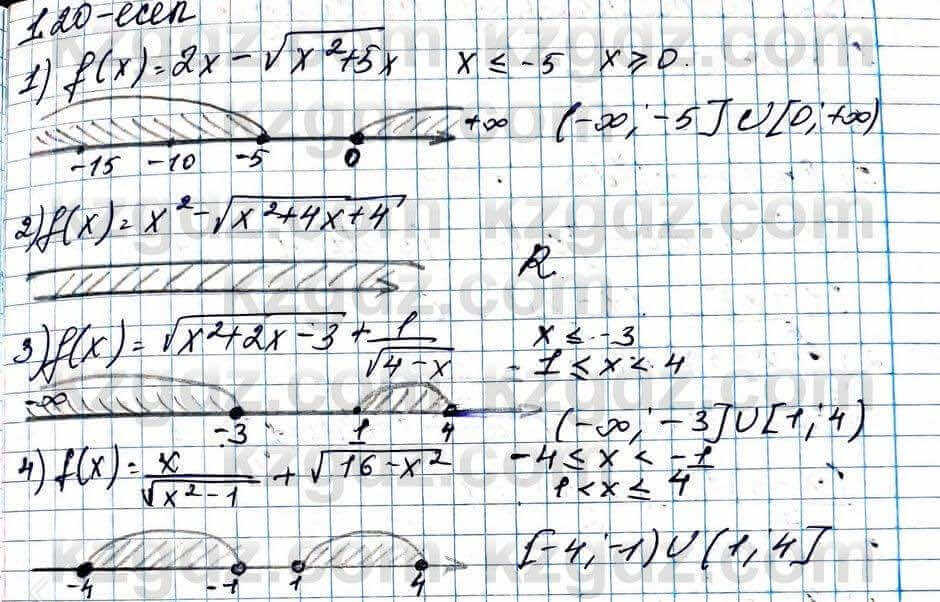 1.20-есеп
1) f(x) = 2x - √(x²+5x) x ≤ -5 x ≥ 0.
-15 -10 -5 0 +∞ (-∞; -5] ∪ [0; +∞)
2) f(x) = x² - √(x²+4x+4)
R
3) f(x) = √(x²+2x-3) + 1/√(4-x) x ≤ -3
1 ≤ x < 4
-∞ -3 1 4 (-∞; -3] ∪ [1; 4)
4) f(x) = x/√(x²-1) + √(16-x²) -4 ≤ x < -1
1 < x ≤ 4
-4 -1 1 4 [-4; -1) ∪ (1; 4]
kzgdz.com